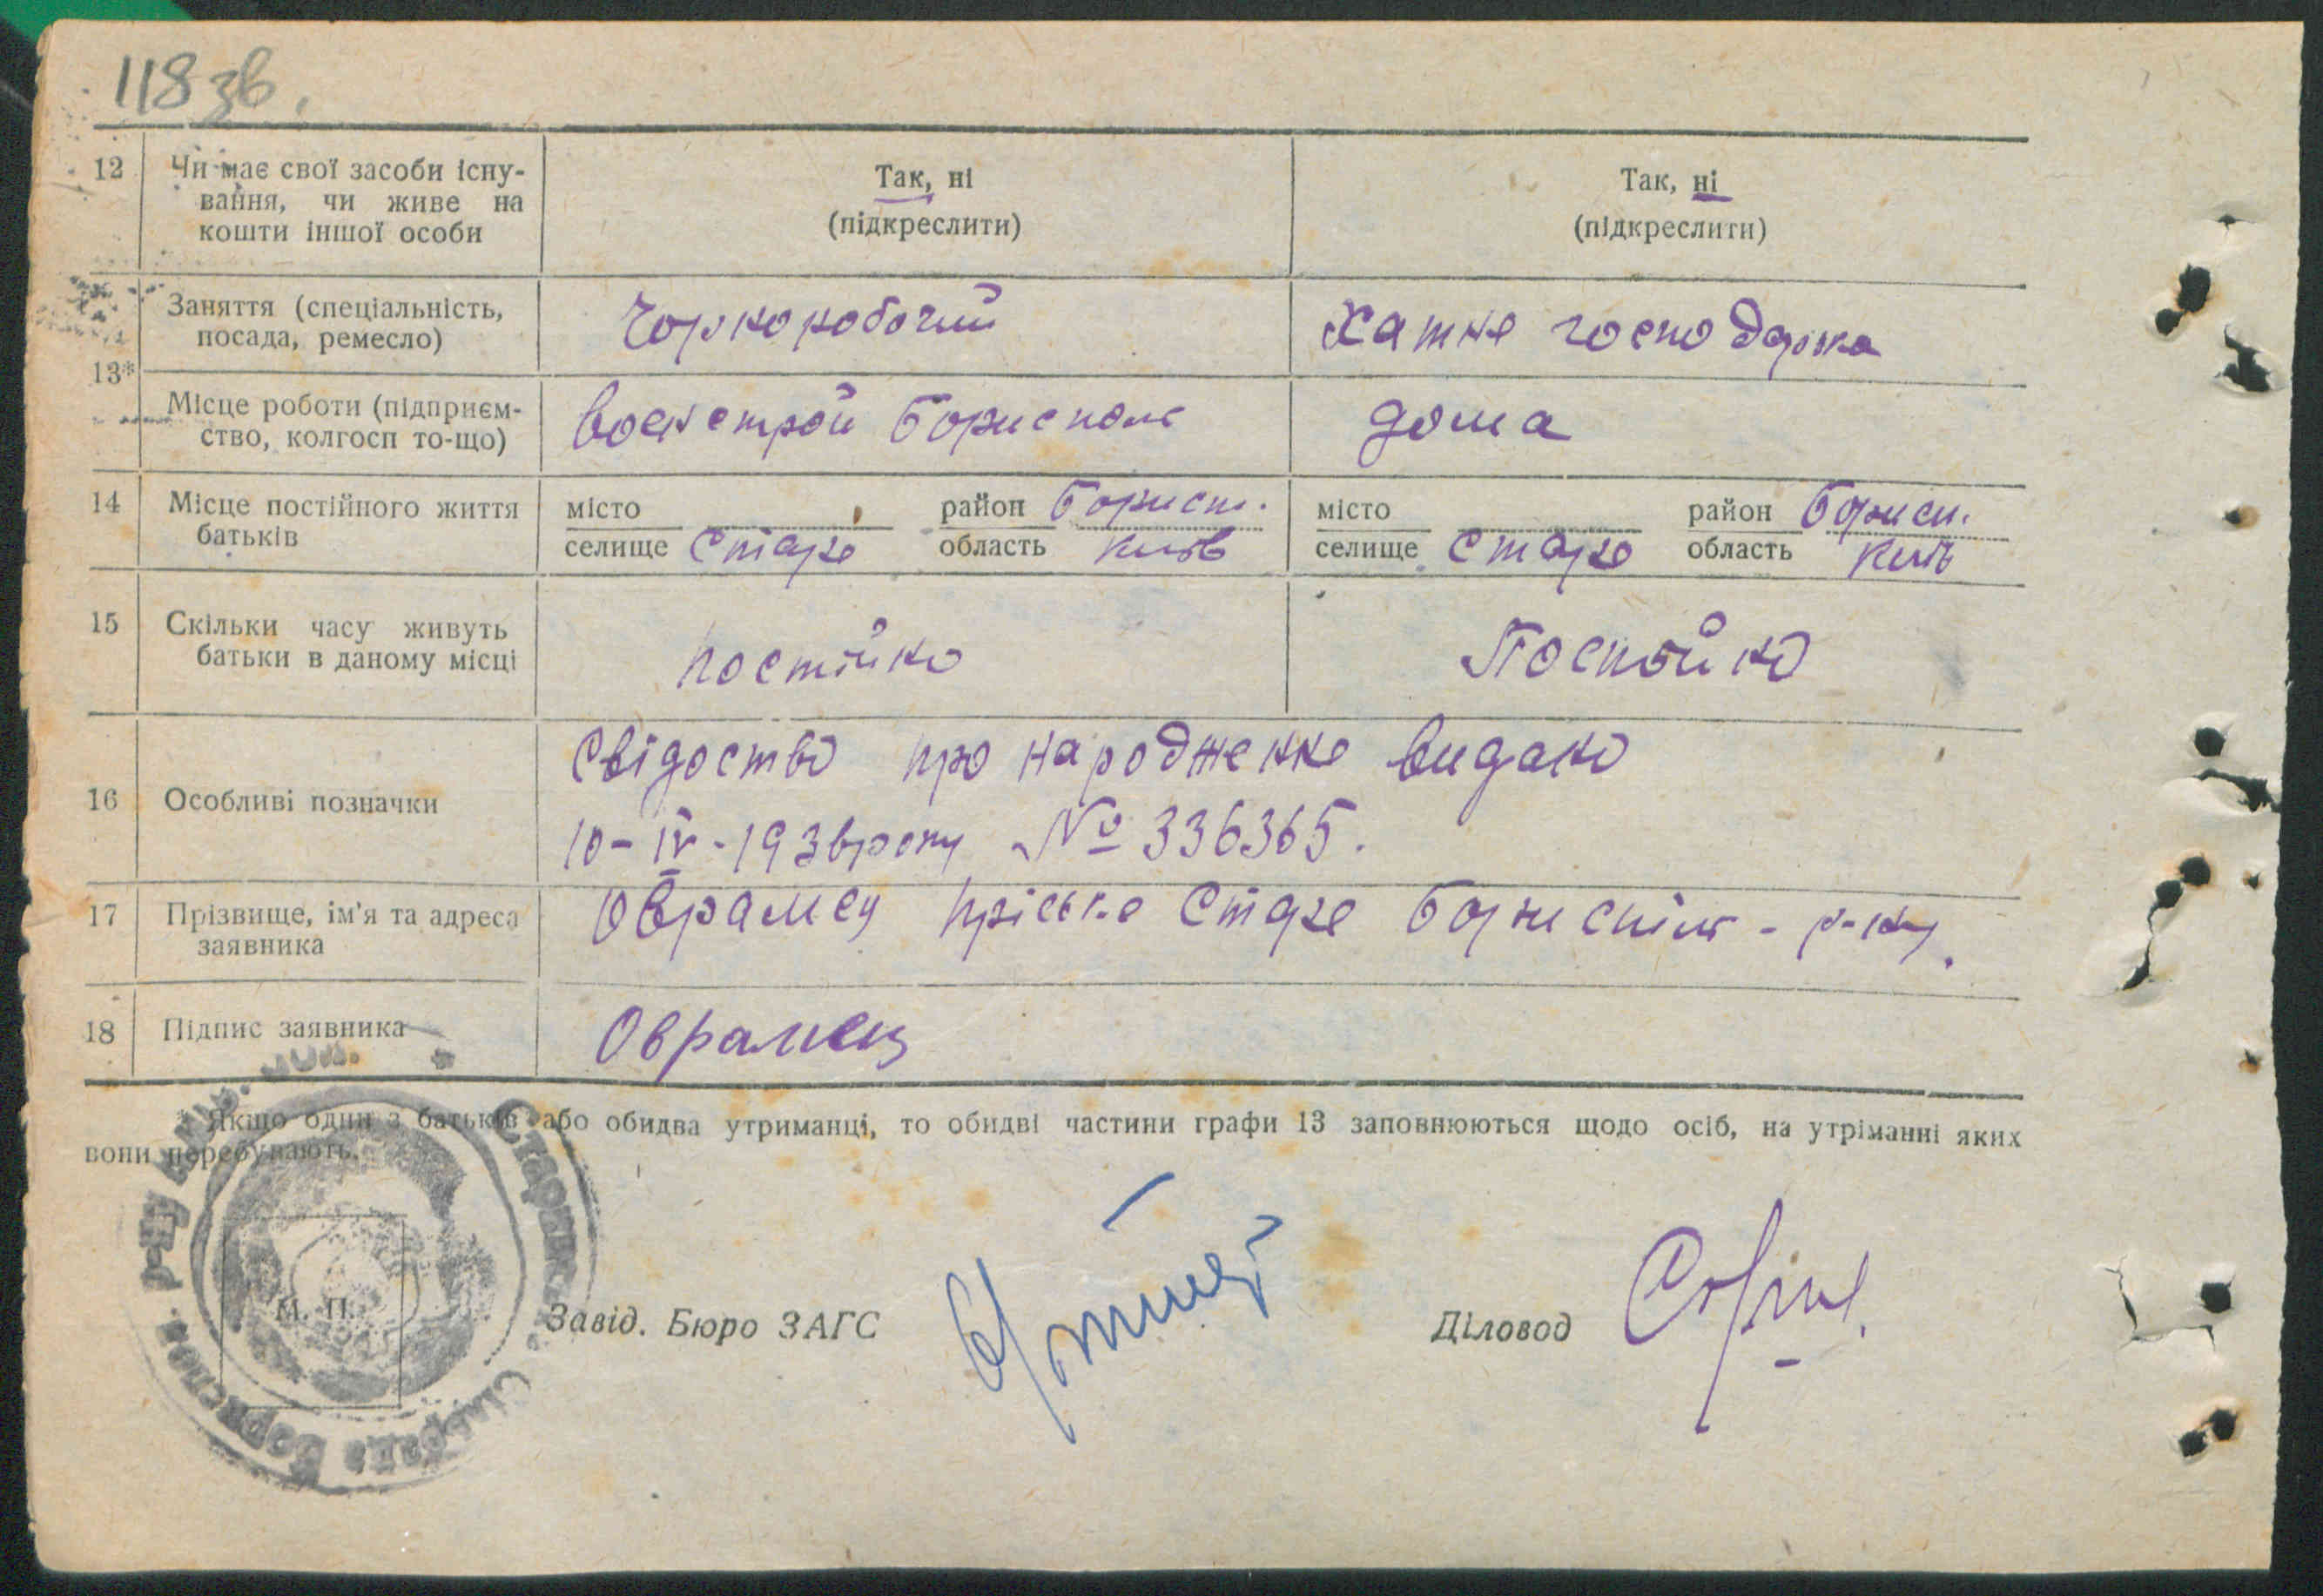 118 зв.
12 Чи має свої засоби існу-
вання, чи живе на
кошти іншої особи
Так, ні
(підкреслити)
Так, ні
(підкреслити)
13*
Заняття (спеціальність,
посада, ремесло)
Чорноробочий
Хатне господарка
Місце роботи (підприєм-
ство, колгосп то-що)
Воєнстрой Бориспол
дома
14 Місце постійного життя
батьків
місто
селище Старе
район Борисп.
область Київ
місто
селище Старе
район Борисп.
область Київ
15 Скільки часу живуть
батьки в даному місці
постійно
Постойно
16 Особливі позначки
Свідоство про народження видано
10-IV-193 року № 336365.
17 Прізвище, ім'я та адреса
заявника
Оврамец Пріська Старе Бориспіл - р-ну.
18 Підпис заявника
Оврамец
* Якщо один з батьків або обидва утриманці, то обидві частини графи 13 заповнюються щодо осіб, на утріманні яких
вони перебувають.
М. П.
Завід. Бюро ЗАГС
Діловод
Сільрада Бориспол. р-ну